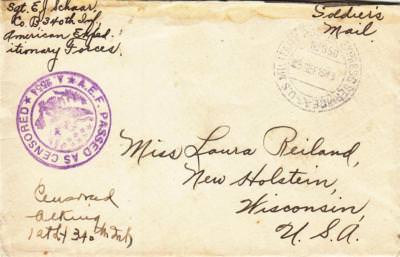 Sgt. E J Schaar,
Co. B 340th Inf,
American Exped-
itionary Forces.
Soldier's
Mail.
A.E.F. PASSED AS CENSORED
Miss Laura Reiland,
New Holstein,
Wisconsin,
U. S. A.
Censored
340th Inf